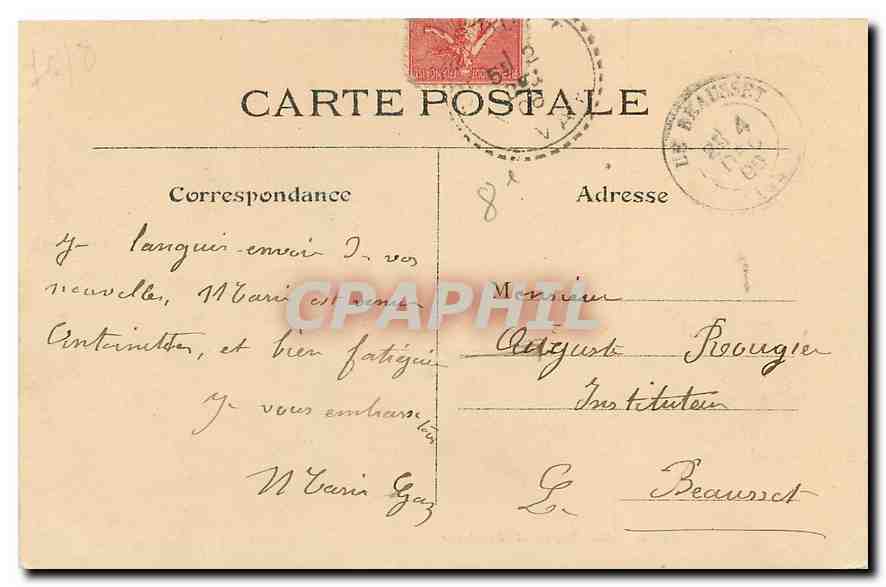 CARTE POSTALE
LE BEAUSSET
4
VAR
Correspondance
Adresse
Je languis envoie de vos
nouvelles, Marie est venue
Antoinette, et bien fatiguée
Je vous embrasse
tous
Marie Gaz
Monsieur
Auguste Rougier
Instituteur
Le Beausset
CPAPHIL